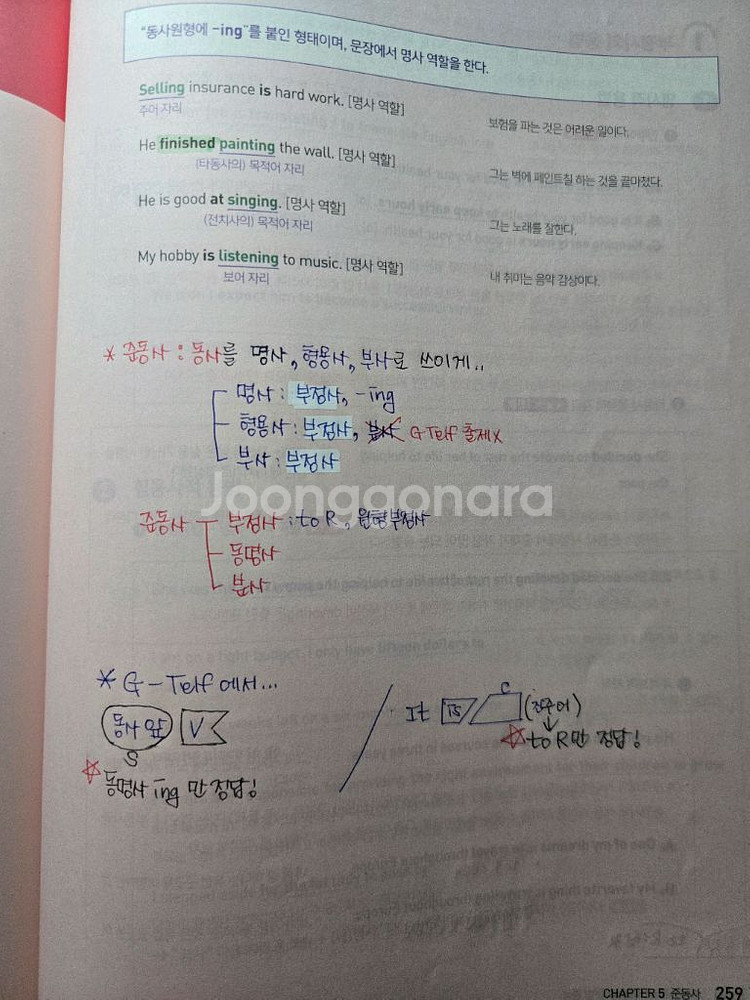 "동사원형에 -ing"를 붙인 형태이며, 문장에서 명사 역할을 한다.
Selling insurance is hard work. [명사 역할] 보험을 파는 것은 어려운 일이다.
주어 자리
He finished painting the wall. [명사 역할] 그는 벽에 페인트칠 하는 것을 끝마쳤다.
(타동사의) 목적어 자리
He is good at singing. [명사 역할] 그는 노래를 잘한다.
(전치사의) 목적어 자리
My hobby is listening to music. [명사 역할] 내 취미는 음악 감상이다.
보어 자리
* 준동사 : 동사를 명사, 형용사, 부사로 쓰이게..
명사 : 부정사, -ing
형용사 : 부정사, G-Telf 출제X
부사 : 부정사
Joonggonara
준동사 부정사 : to R, 원형부정사
동명사
분사
* G-Telf 에서...
동사 앞 V
S
☆ 동명사 ing 만 정답!
It is C (진주어)
☆ to R만 정답!
CHAPTER 5 준동사 259